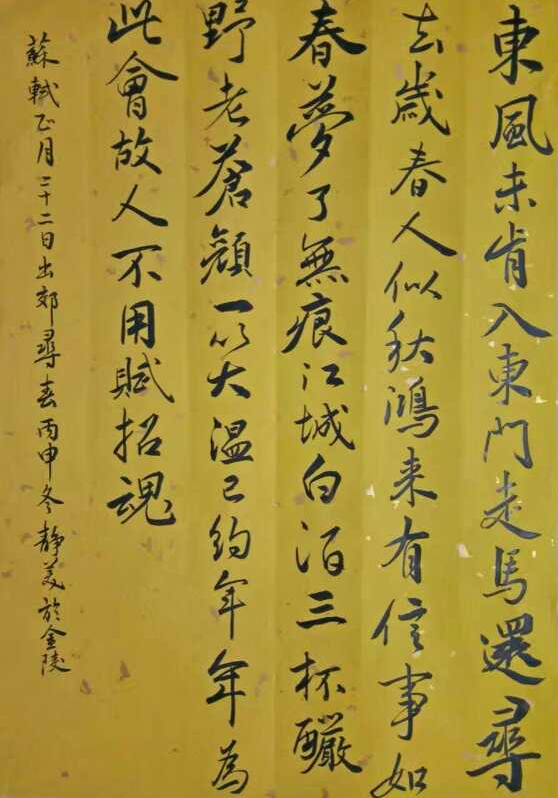 東風未肯入東門走馬還尋
去歲春人似秋鴻来有信事如
春夢了無痕江城白酒三杯釅
野老蒼顔一笑温已約年年為
此會故人不用賦招魂
蘇軾正月二十二日出郊尋春丙申冬静美於金陵